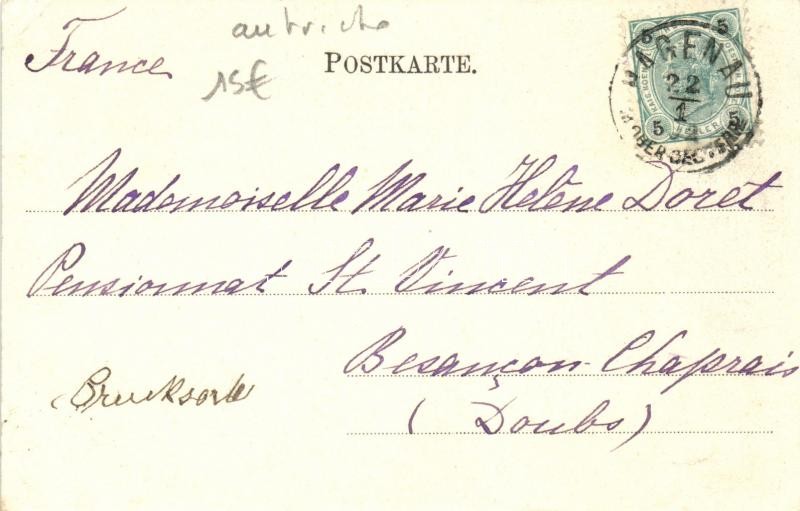 autriche
France
15€
POSTKARTE.
HAGENAU
22
1
5 5
5 HELLER 5
Mademoiselle Marie Helène Doret
Pensionnat St. Vincent
Besançon-Chaprais
(Doubs)
Drucksorte